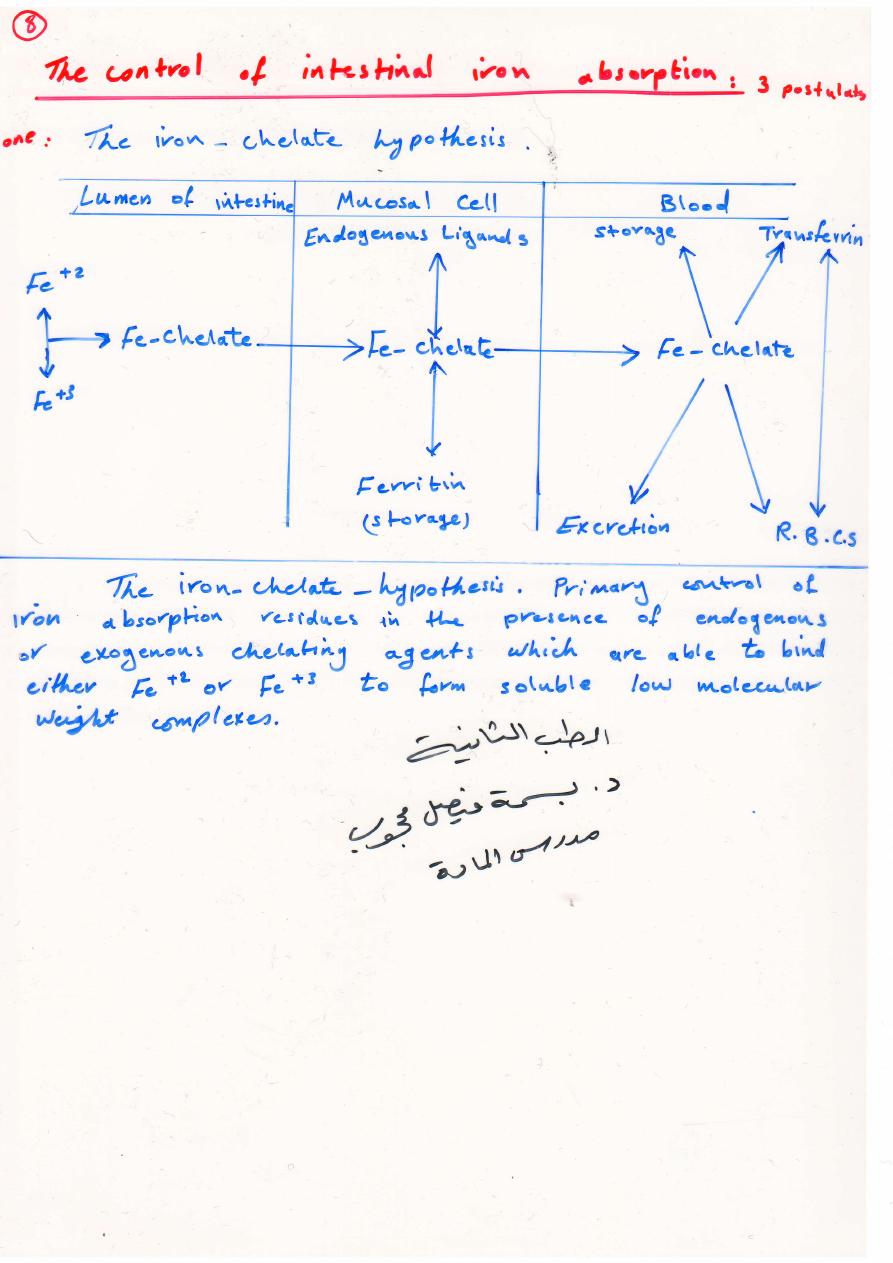 8
The control of intestinal iron absorption: 3 postulats
one: The iron-chelate hypothesis.
Lumen of intestine Mucosal Cell Blood
Endogenous Ligands storage Transferrin
Fe+2
Fe-Chelate Fe-chelate Fe-chelate
Fe+3
Ferritin
(storage) Excretion R.B.C.S
The iron-chelate-hypothesis. Primary control of
iron absorption residues in the presence of endogenous
or exogenous chelating agents which are able to bind
either Fe+2 or Fe+3 to form soluble low molecular
weight complexes.
الطب الثانية
د. بسمة فيصل محجوب
مدرس المادة